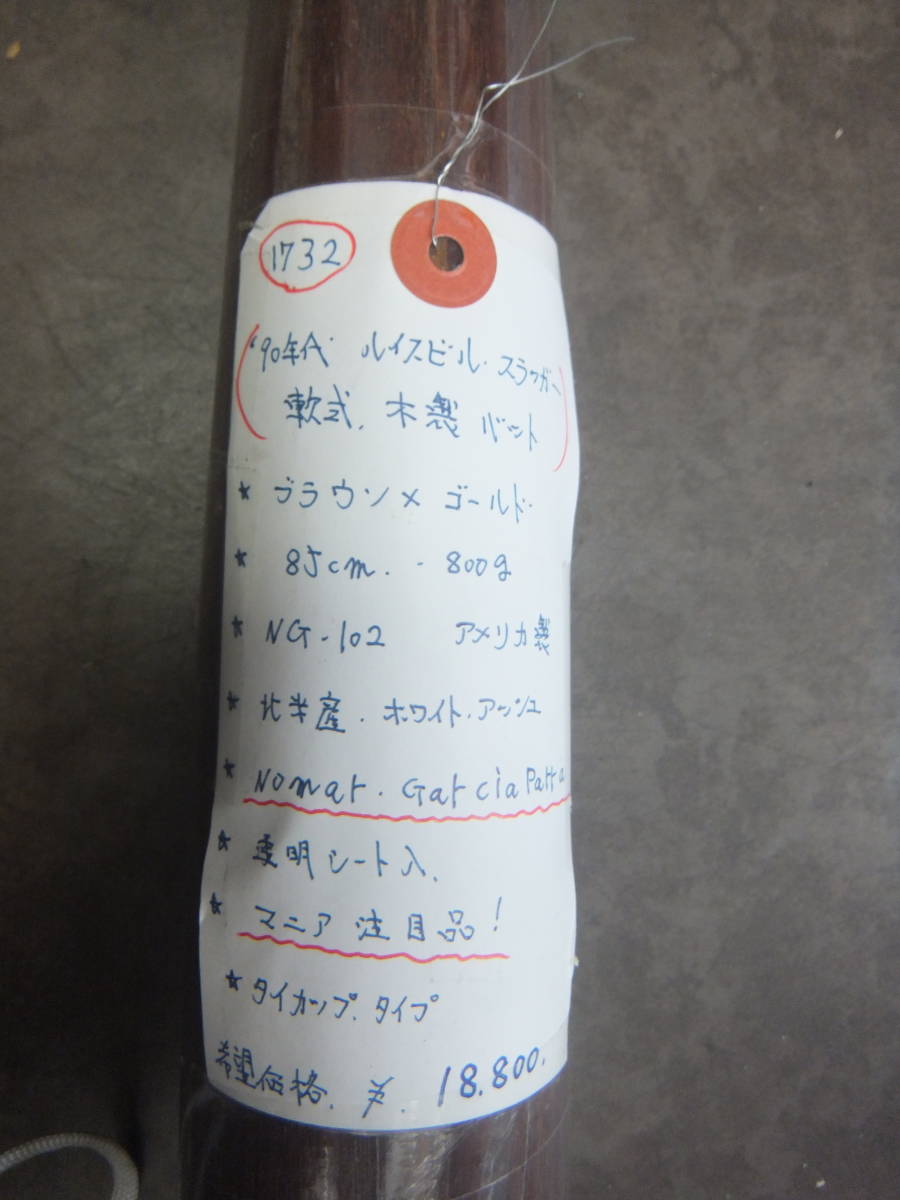 1732
('90年代 ルイスビル・スラッガー
軟式.木製 バット)
★ ブラウン×ゴールド.
★ 85cm. - 800g
★ NG-102 アメリカ製
★ 北米産.ホワイト.アッシュ
★ Nomar. GarciaParra
★ 透明シート入.
★ マニア注目品!
★ タイカップ.タイプ
希望価格.¥.18.800.